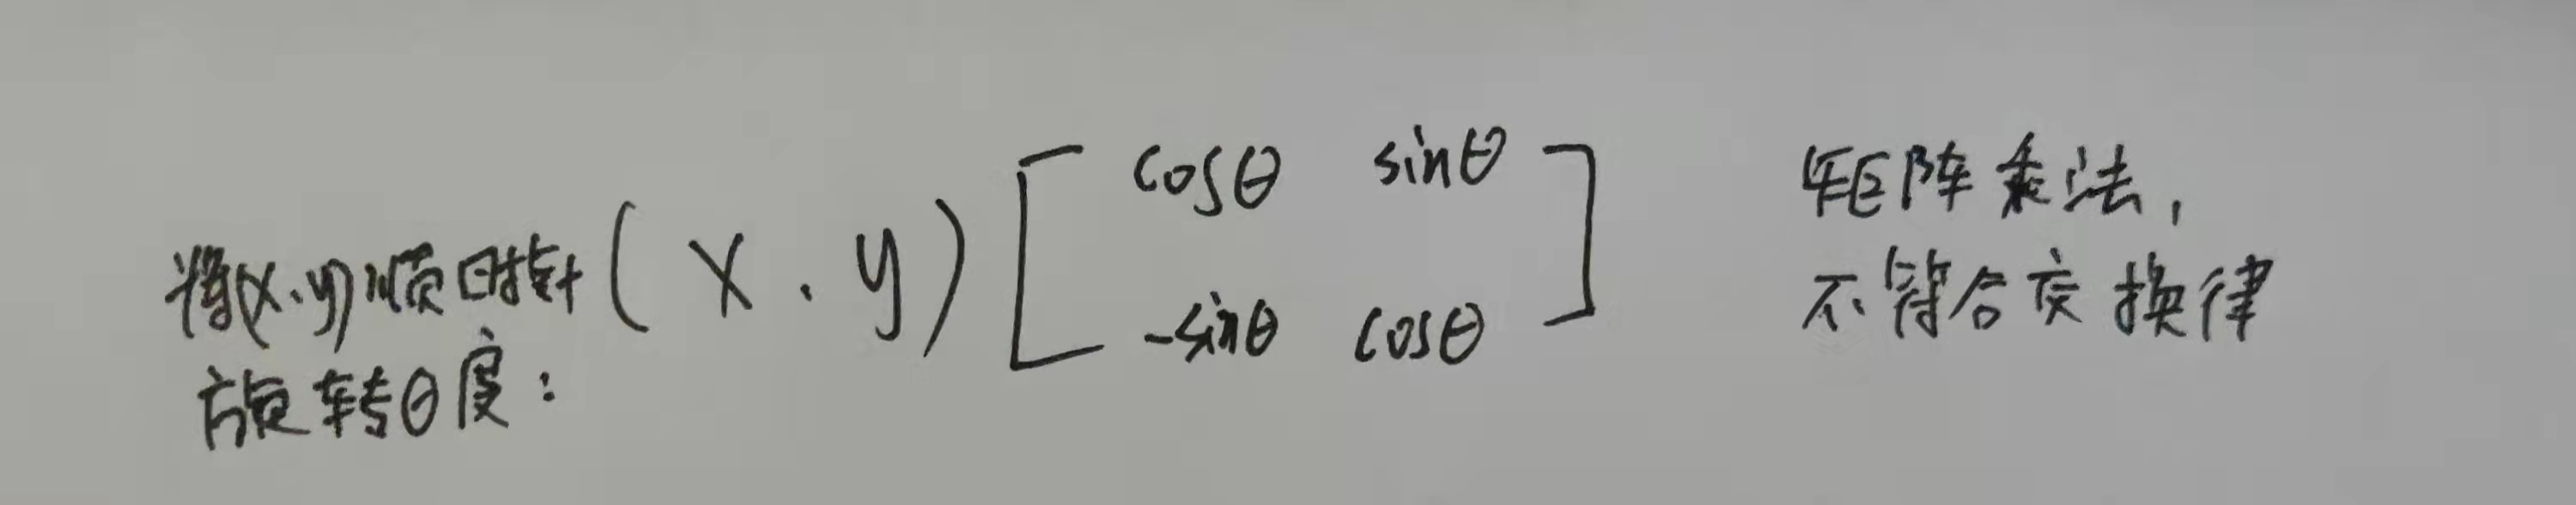 将(x、y)顺时针
旋转θ度：
(x、y)
[cosθ sinθ
-sinθ cosθ]
矩阵乘法，
不符合交换律